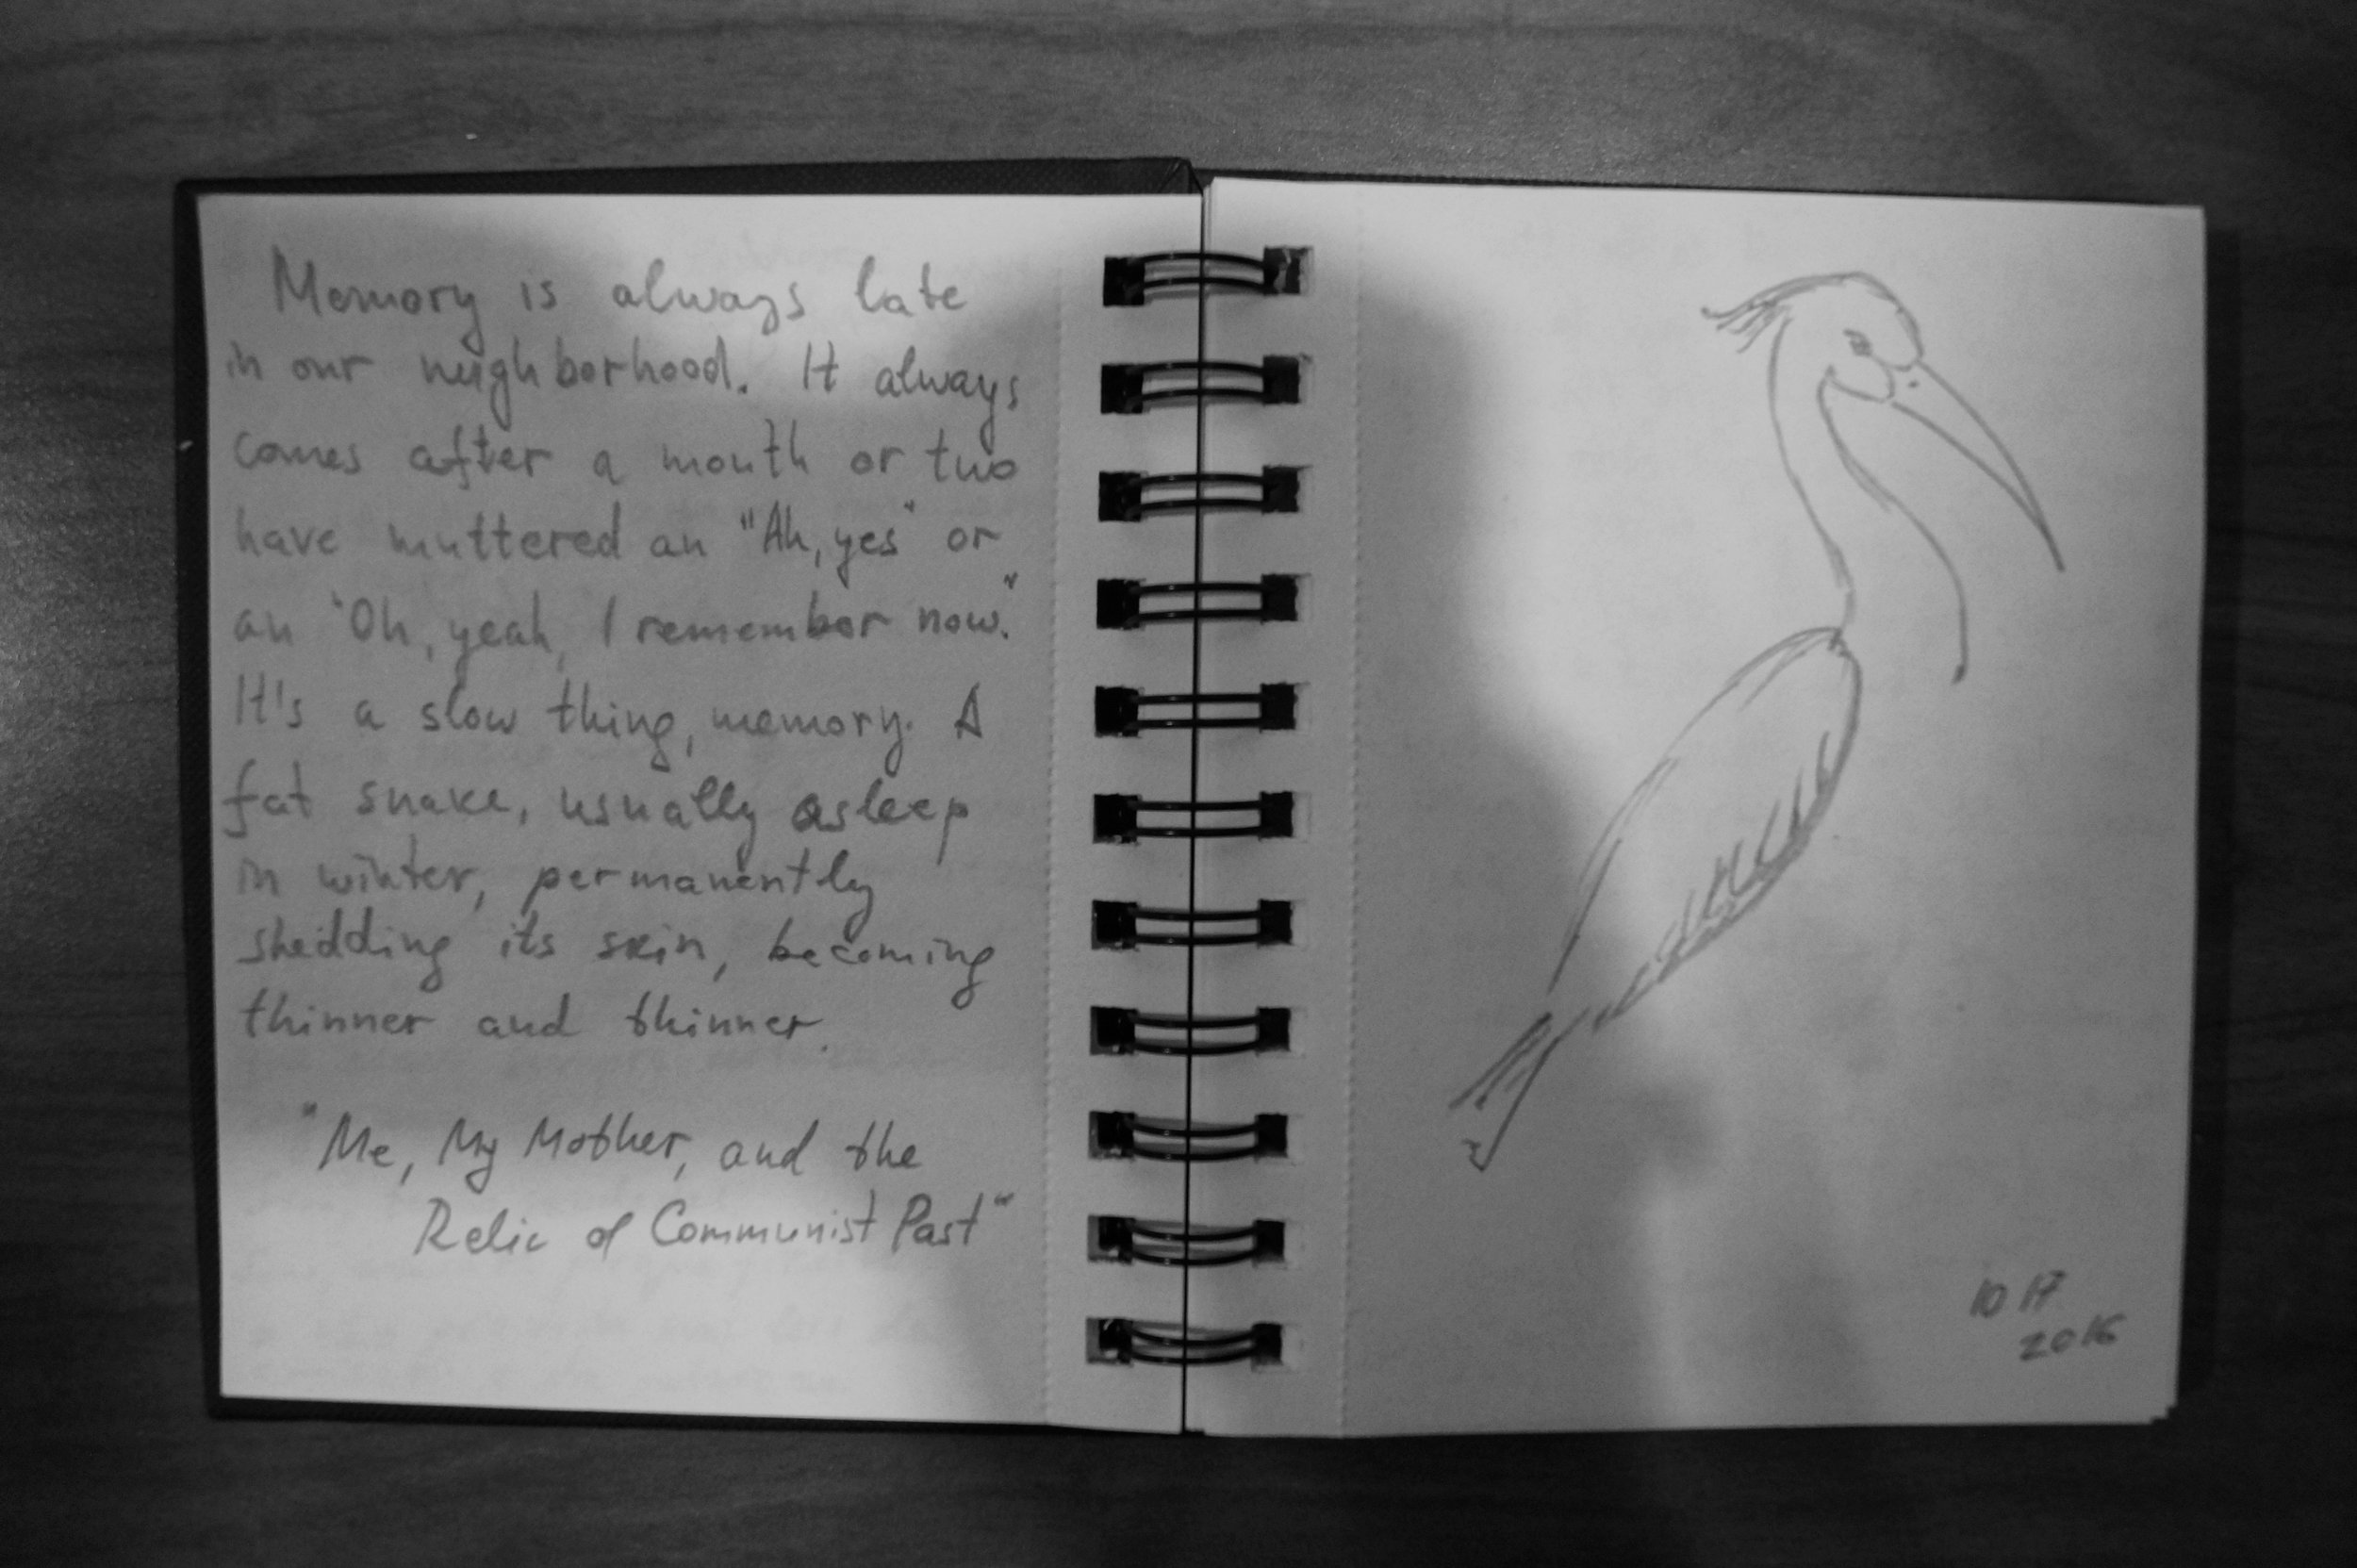 Memory is always late
in our neighborhood. It always
comes after a mouth or two
have muttered an "Ah, yes" or
an "Oh, yeah, I remember now."
It's a slow thing, memory. A
fat snake, usually asleep
in winter, permanently
shedding its skin, becoming
thinner and thinner.
"Me, My Mother, and the
Relic of Communist Past"
10 17
2016